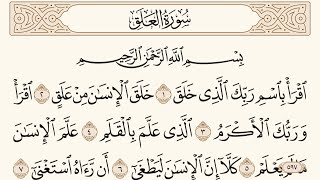 سُورَةُ العَلَقِ
بِسْمِ اللَّهِ الرَّحْمَٰنِ الرَّحِيمِ
اقْرَأْ بِاسْمِ رَبِّكَ الَّذِي خَلَقَ ١ خَلَقَ الْإِنسَانَ مِنْ عَلَقٍ ٢ اقْرَأْ
وَرَبُّكَ الْأَكْرَمُ ٣ الَّذِي عَلَّمَ بِالْقَلَمِ ٤ عَلَّمَ الْإِنسَانَ
مَا لَمْ يَعْلَمْ ٥ كَلَّا إِنَّ الْإِنسَانَ لَيَطْغَىٰ ٦ أَن رَّءَاهُ اسْتَغْنَىٰ ٧
٥٩٧